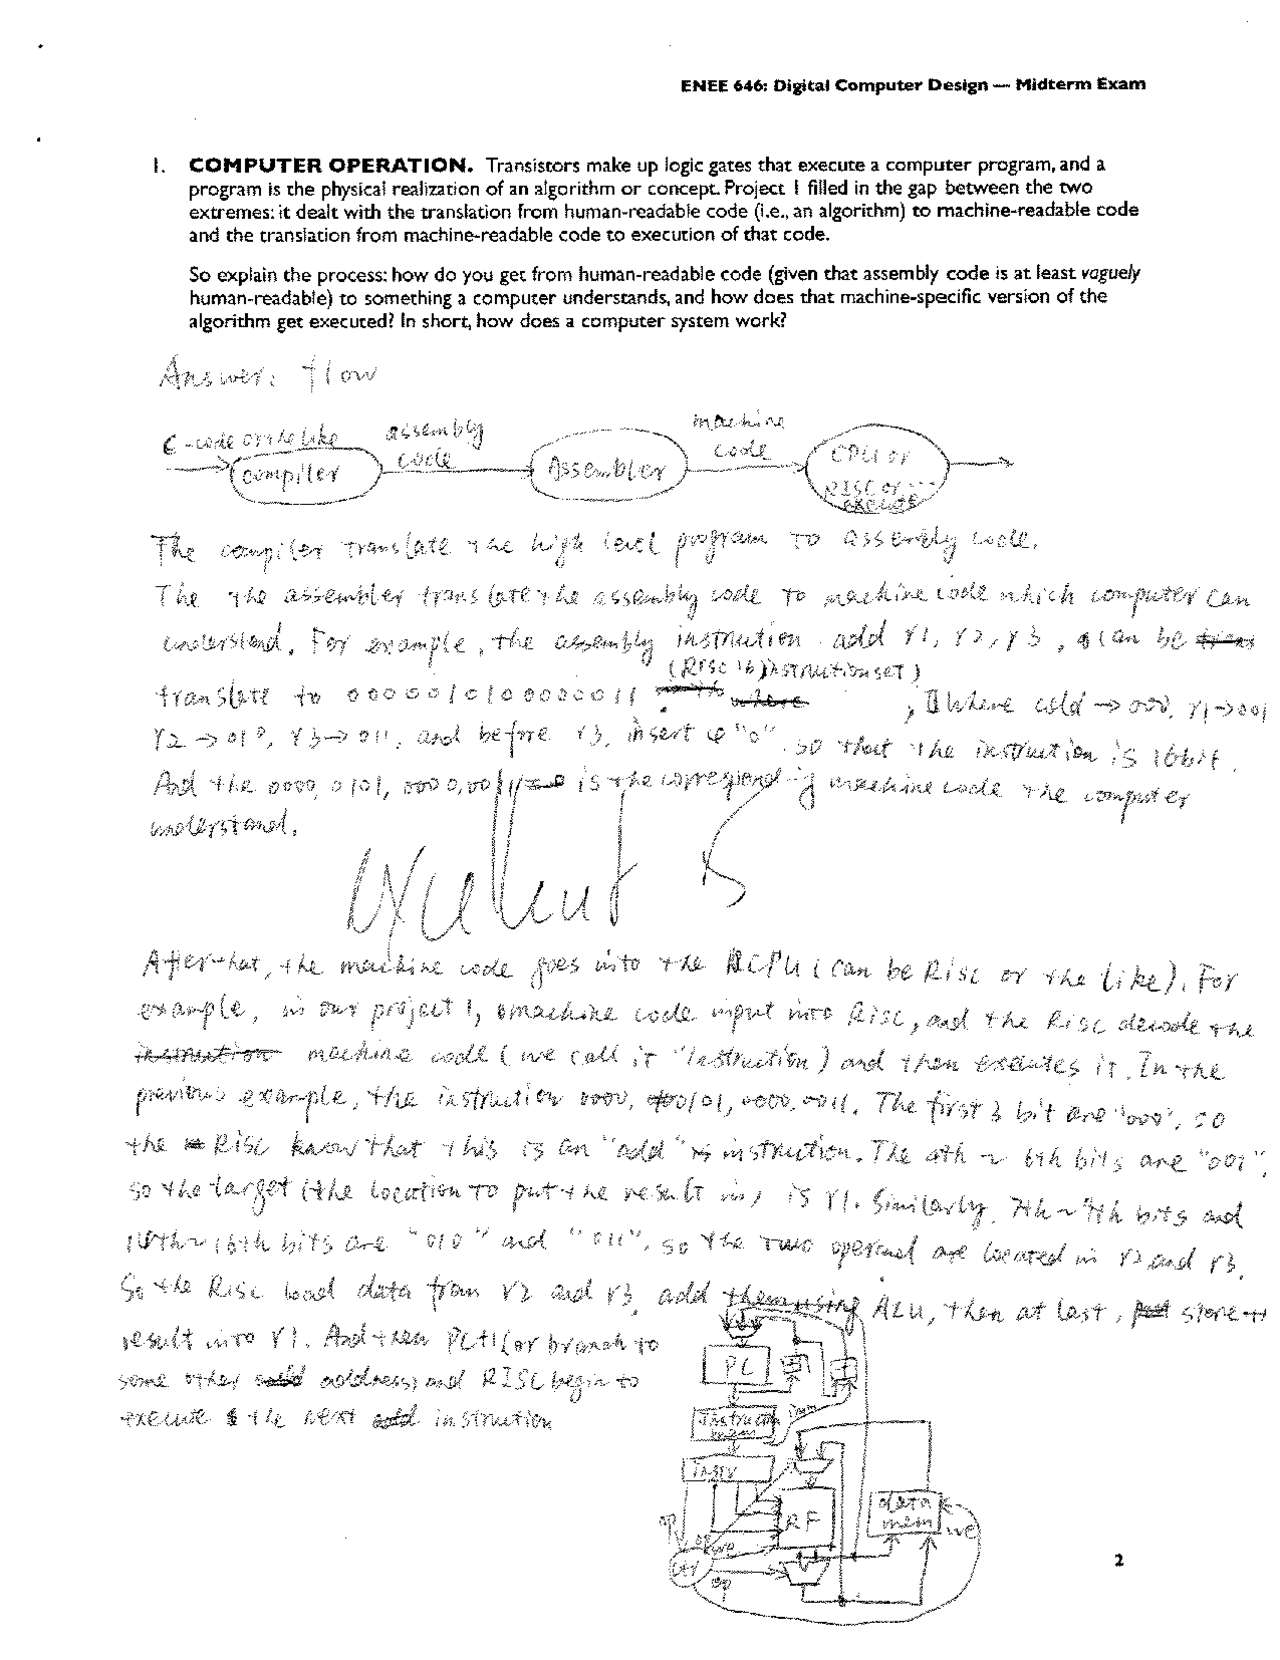 ENEE 646: Digital Computer Design — Midterm Exam
1. COMPUTER OPERATION. Transistors make up logic gates that execute a computer program, and a
program is the physical realization of an algorithm or concept. Project 1 filled in the gap between the two
extremes: it dealt with the translation from human-readable code (i.e., an algorithm) to machine-readable code
and the translation from machine-readable code to execution of that code.
So explain the process: how do you get from human-readable code (given that assembly code is at least vaguely
human-readable) to something a computer understands, and how does that machine-specific version of the
algorithm get executed? In short, how does a computer system work?
Answer: flow
C-code or the like
compiler
assembly
code
Assembler
machine
code
CPU or
RISC or ...
execute
The compiler translate the high level program to assembly code.
The the assembler translate the assembly code to machine code which computer can
understand. For example, the assembly instrution add r1, r2, r3, can be
(RISC 16 instruction set)
translate to 0000010100000011 , where add → 000, r1→001
r2 → 010, r3→ 011, and before r3, insert "0" so that the instruction is 16bit.
And the 0000, 0101, 0000, 0011 is the corresponding machine code the computer
understand.
Excellent 5
After that, the machine code goes into the CPU (can be RISC or the like). For
example, in our project 1, machine code input into RISC, and the RISC decode the
instruction machine code (we call it "instruction) and then executes it. In the
previous example, the instruction 0000, 0101, 0000, 0011. The first 3 bit are "000", so
the RISC know that this is an "add" instruction. The 4th ~ 6th bits are "001",
so the target (the location to put the result in) is r1. Similarly, 7th ~ 9th bits and
14th ~ 16th bits are "010" and "011", so the two operand are located in r2 and r3.
So the RISC load data from r2 and r3, add them using ALU, then at last, store
result into r1. And then PC+1 (or branch to
some other address) and RISC begin to
execute the next instrution
PC
Instruct
mem
imm
instr
RF
data
mem
we
op
op
we
ctr
op
2